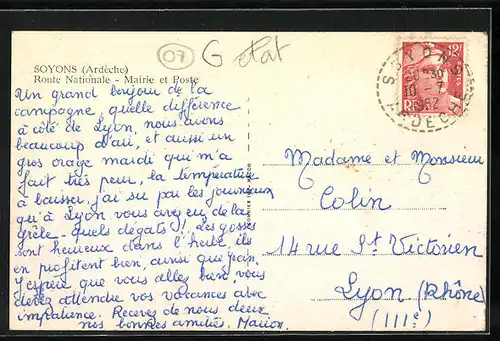 SOYONS (Ardèche)
Route Nationale - Mairie et Poste
07
G etat
Un grand bonjour de la
campagne, quelle différence
à côté de Lyon, nous avons
beaucoup d'air, et aussi un
gros orage mardi qui m'a
fait très peur, la température
a baissé, j'ai su par les journaux
qu'à Lyon vous avez eu de la
grêle - quels dégats!! Les gosses
sont heureux dans l'herbe, ils
en profitent bien, ainsi que Jean.
J'espère que vous allez bien, vous
devez attendre vos vacances avec
impatience. Recevez de nous deux
nos bonnes amitiés. Marion.
12F
SOYONS
30
10 - 7
1952
ARDECHE
RF
Madame et Monsieur
Colin
14 rue St Victorien
Lyon (Rhône)
(IIIe)